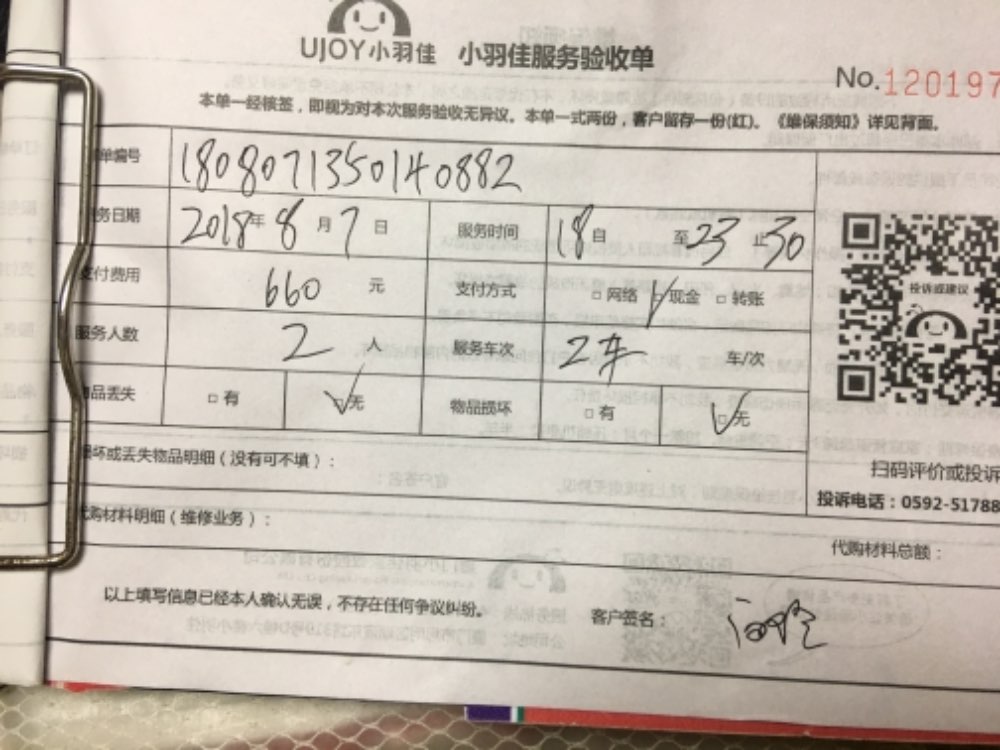 UJOY小羽佳 小羽佳服务验收单
No.120197
本单一经核签，即视为对本次服务验收无异议。本单一式两份，客户留存一份(红)。《维保须知》详见背面。
单编号 1808071350140882
务日期 2018年8月7日 服务时间 18自 至23止30
支付费用 660 元 支付方式 □网络 ☑现金 □转账
服务人数 2 人 服务车次 2车 车/次
物品丢失 □有 ☑无 物品损坏 □有 ☑无
投诉或建议
损坏或丢失物品明细（没有可不填）：
扫码评价或投诉
投诉电话：0592-51788
代购材料明细（维修业务）：
代购材料总额：
以上填写信息已经本人确认无误，不存在任何争议纠纷。 客户签名：